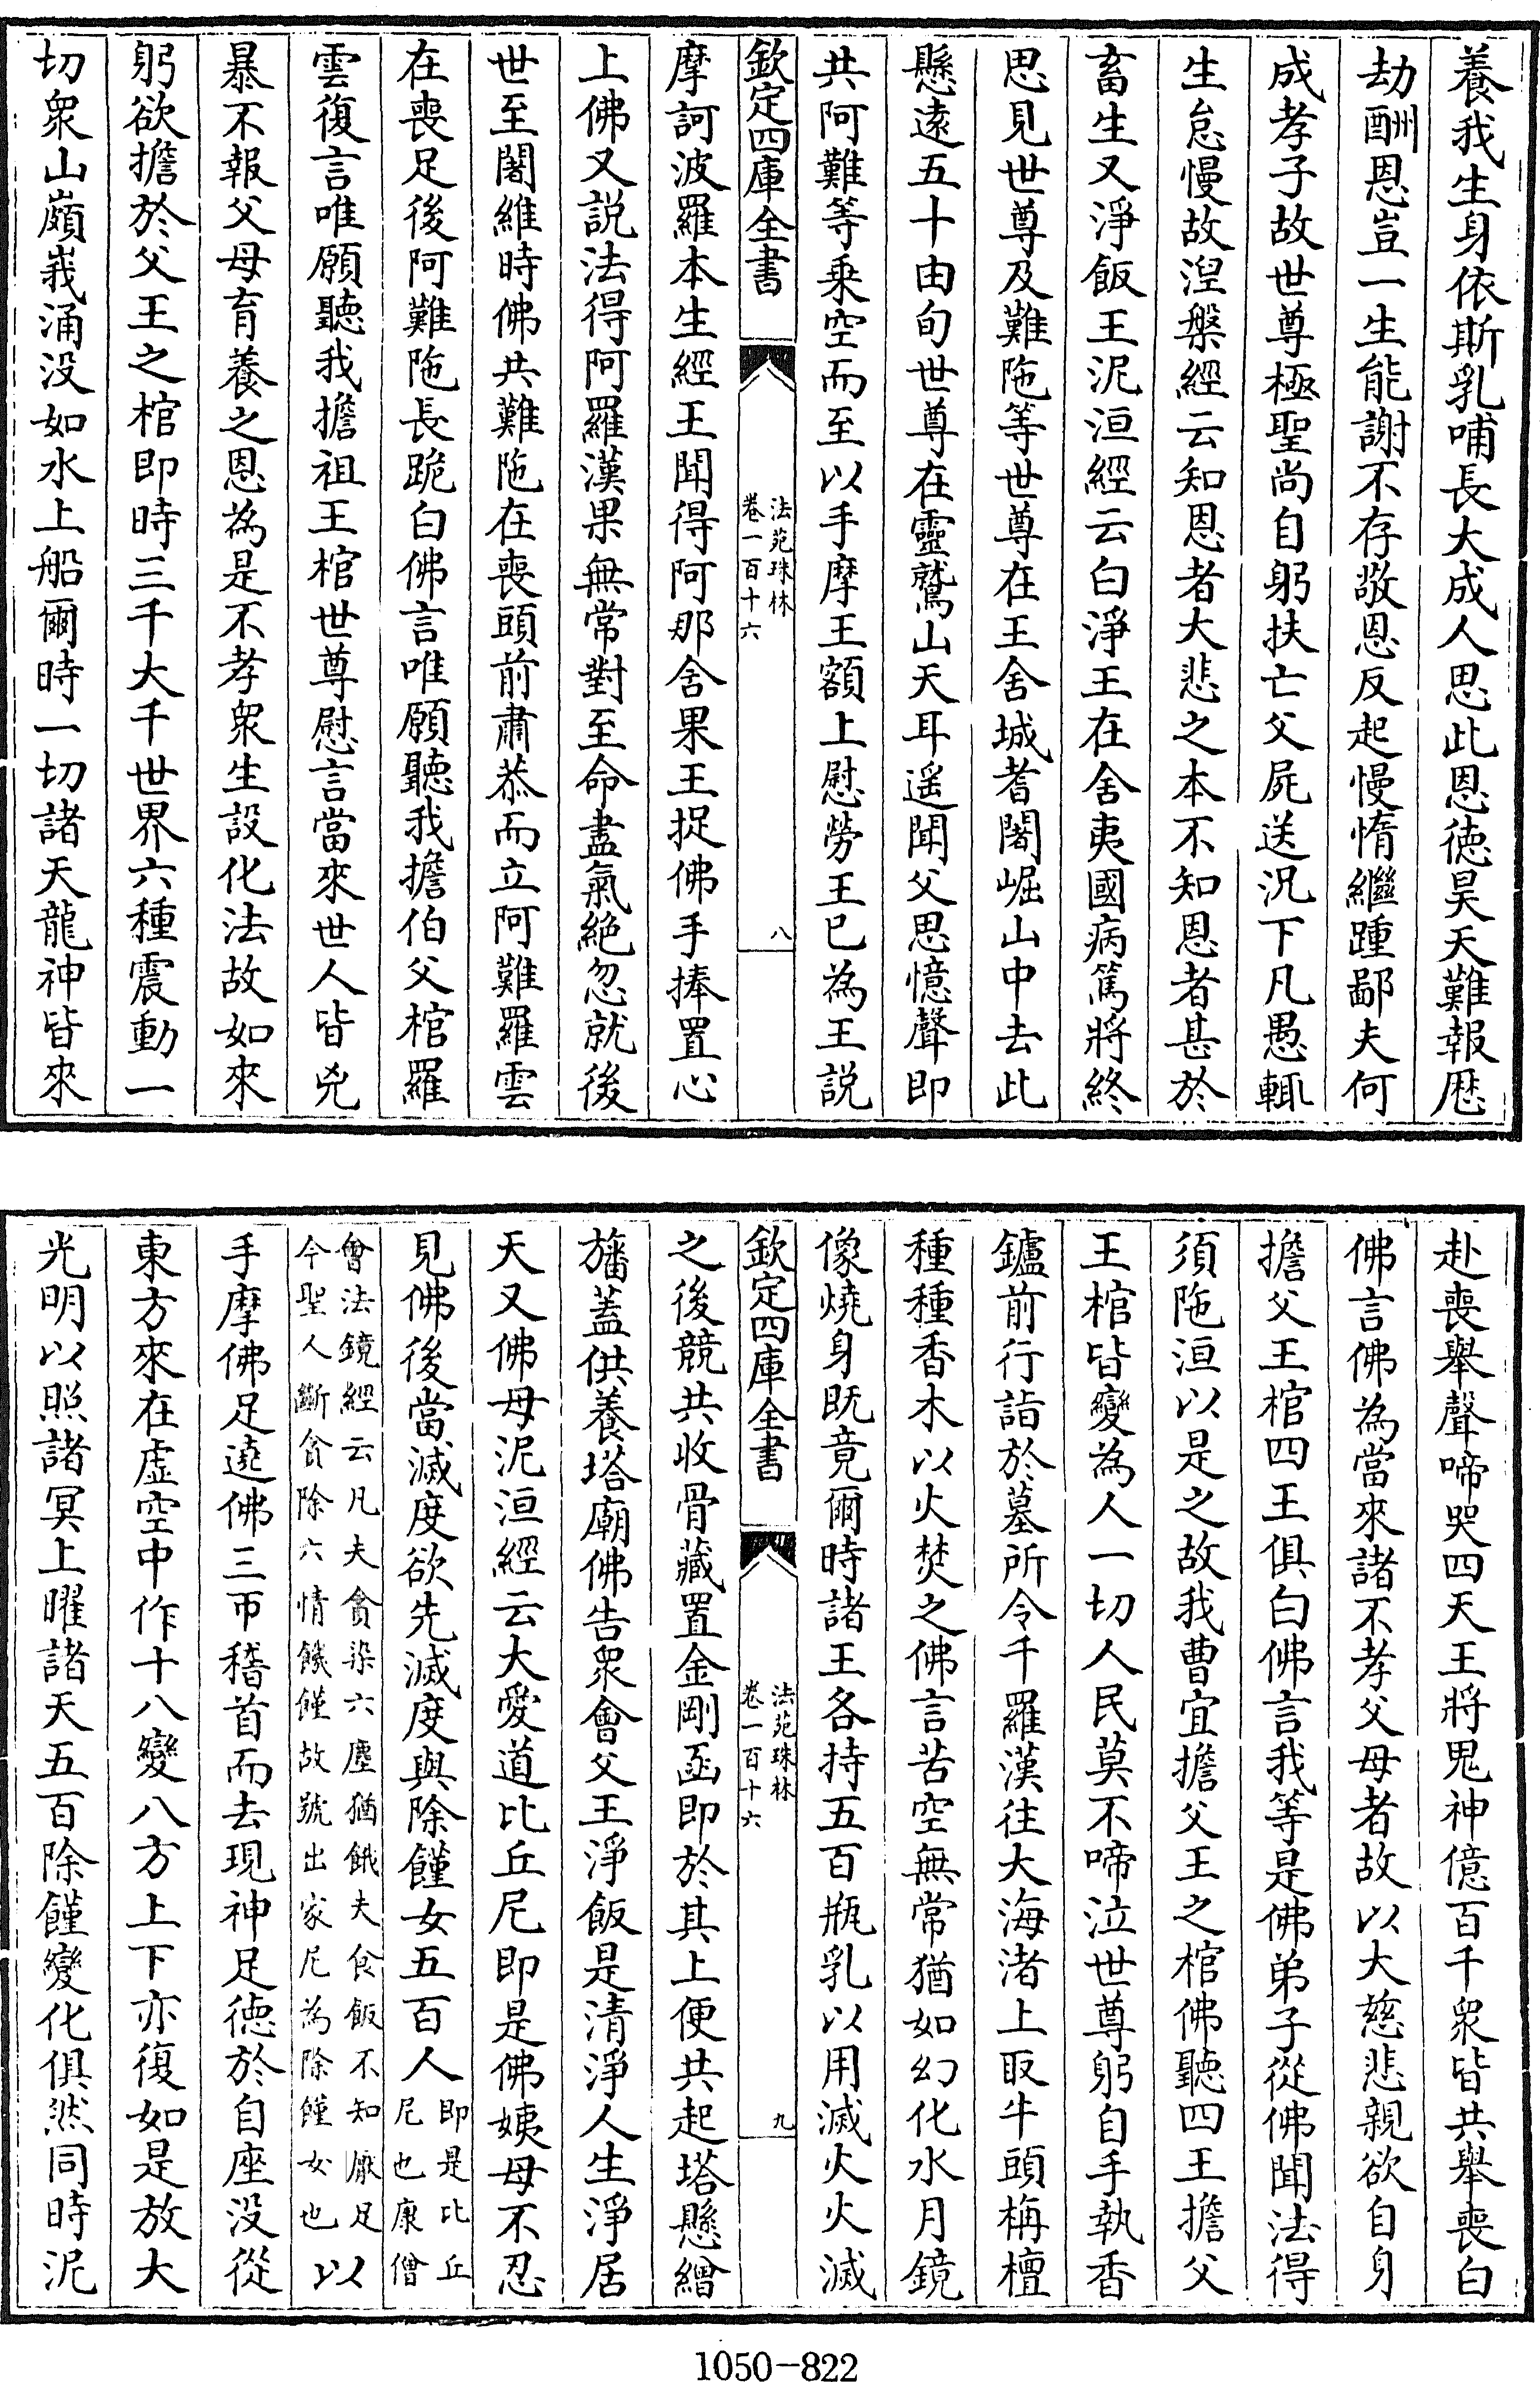 養我生身依斯乳哺長大成人思此恩徳昊天難報歴
劫酬恩豈一生能謝不存敬恩反起慢惰繼踵鄙夫何
成孝子故世尊極聖尚自躬扶亡父屍送況下凡愚輒
生怠慢故涅槃經云知恩者大悲之本不知恩者甚於
畜生又淨飯王泥洹經云白淨王在舍夷國病篤將終
思見世尊及難陁等世尊在王舍城耆闍崛山中去此
懸遠五十由旬世尊在靈鷲山天耳遥聞父思憶聲即
共阿難等乗空而至以手摩王額上慰勞王已為王説
欽定四庫全書
法苑珠林
卷一百十六
八
摩訶波羅本生經王聞得阿那舍果王捉佛手捧置心
上佛又説法得阿羅漢果無常對至命盡氣絶忽就後
世至闍維時佛共難陁在喪頭前肅恭而立阿難羅雲
在喪足後阿難陁長跪白佛言唯願聽我擔伯父棺羅
雲復言唯願聽我擔祖王棺世尊慰言當來世人皆兇
暴不報父母育養之恩為是不孝衆生設化法故如來
躬欲擔於父王之棺即時三千大千世界六種震動一
切衆山巔峩涌没如水上船爾時一切諸天龍神皆來
赴喪舉聲啼哭四天王將鬼神億百千衆皆共舉喪白
佛言佛為當來諸不孝父母者故以大慈悲親欲自身
擔父王棺四王俱白佛言我等是佛弟子從佛聞法得
須陁洹以是之故我曹宜擔父王之棺佛聽四王擔父
王棺皆變為人一切人民莫不啼泣世尊躬自手執香
鑪前行詣於墓所令千羅漢往大海渚上取牛頭栴檀
種種香木以火焚之佛言苦空無常猶如幻化水月鏡
像燒身既竟爾時諸王各持五百瓶乳以用滅火火滅
欽定四庫全書
法苑珠林
卷一百十六
九
之後競共收骨藏置金剛函即於其上便共起塔懸繒
旛蓋供養塔廟佛告衆會父王淨飯是清淨人生淨居
天又佛母泥洹經云大愛道比丘尼即是佛姨母不忍
見佛後當滅度欲先滅度與除饉女五百人即是比丘
尼也康僧
會法鏡經云凡夫貪染六塵猶餓夫食飯不知厭足
今聖人斷貪除六情饑饉故號出家尼為除饉女也以
手摩佛足遶佛三帀稽首而去現神足徳於自座没從
東方來在虛空中作十八變八方上下亦復如是放大
光明以照諸冥上曜諸天五百除饉變化俱然同時泥
1050-822